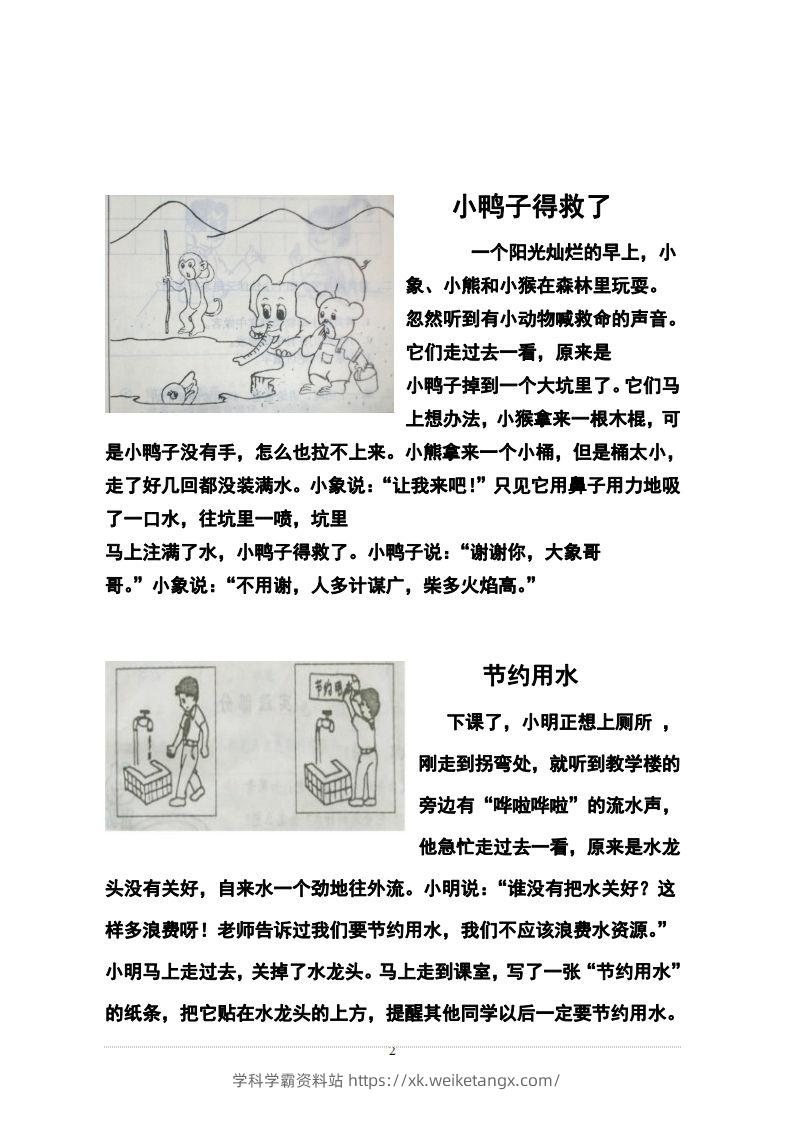 小鸭子得救了
一个阳光灿烂的早上，小
象、小熊和小猴在森林里玩耍。
忽然听到有小动物喊救命的声音。
它们走过去一看，原来是
小鸭子掉到一个大坑里了。它们马
上想办法，小猴拿来一根木棍，可
是小鸭子没有手，怎么也拉不上来。小熊拿来一个小桶，但是桶太小，
走了好几回都没装满水。小象说：“让我来吧！”只见它用鼻子用力地吸
了一口水，往坑里一喷，坑里
马上注满了水，小鸭子得救了。小鸭子说：“谢谢你，大象哥
哥。”小象说：“不用谢，人多计谋广，柴多火焰高。”
节约用水
节约用水
下课了，小明正想上厕所 ，
刚走到拐弯处，就听到教学楼的
旁边有“哗啦哗啦”的流水声，
他急忙走过去一看，原来是水龙
头没有关好，自来水一个劲地往外流。小明说：“谁没有把水关好？这
样多浪费呀！老师告诉过我们要节约用水，我们不应该浪费水资源。”
小明马上走过去，关掉了水龙头。马上走到课室，写了一张“节约用水”
的纸条，把它贴在水龙头的上方，提醒其他同学以后一定要节约用水。
2
学科学霸资料站 https://xk.weiketangx.com/